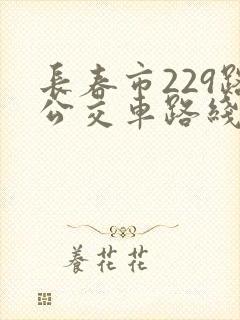 長春市229路
公交車路綫
養花花